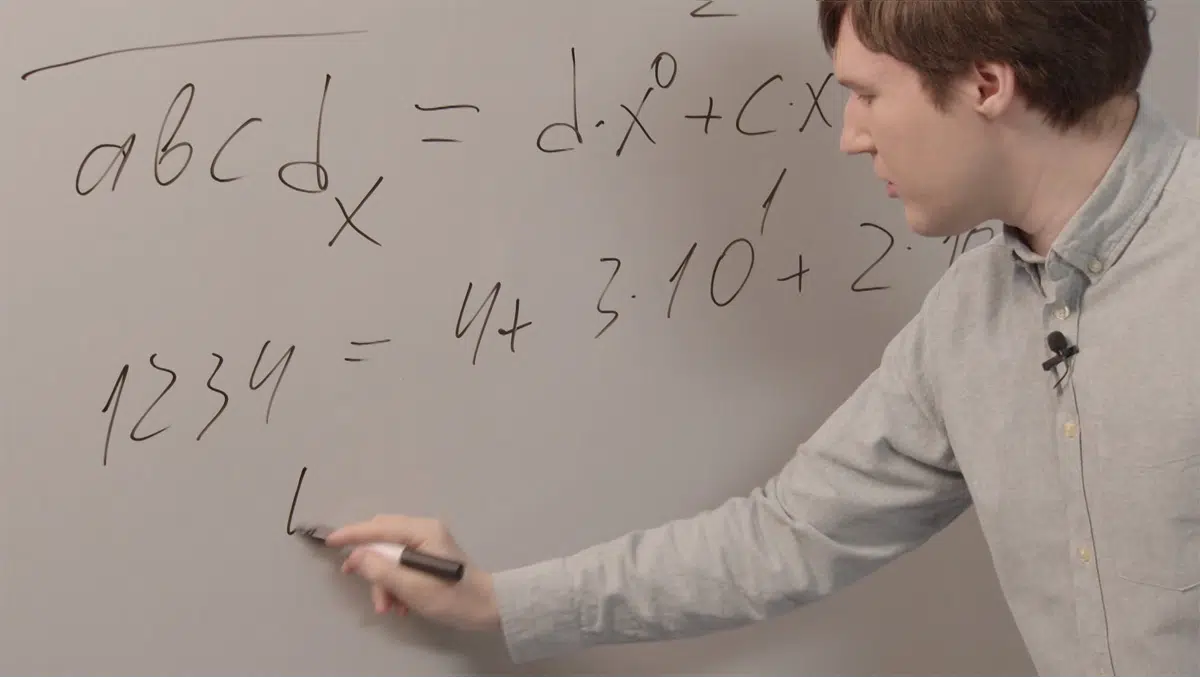 abcd_x = d·x^0 + c·x
1234 = 4+ 3·10^1 + 2·10